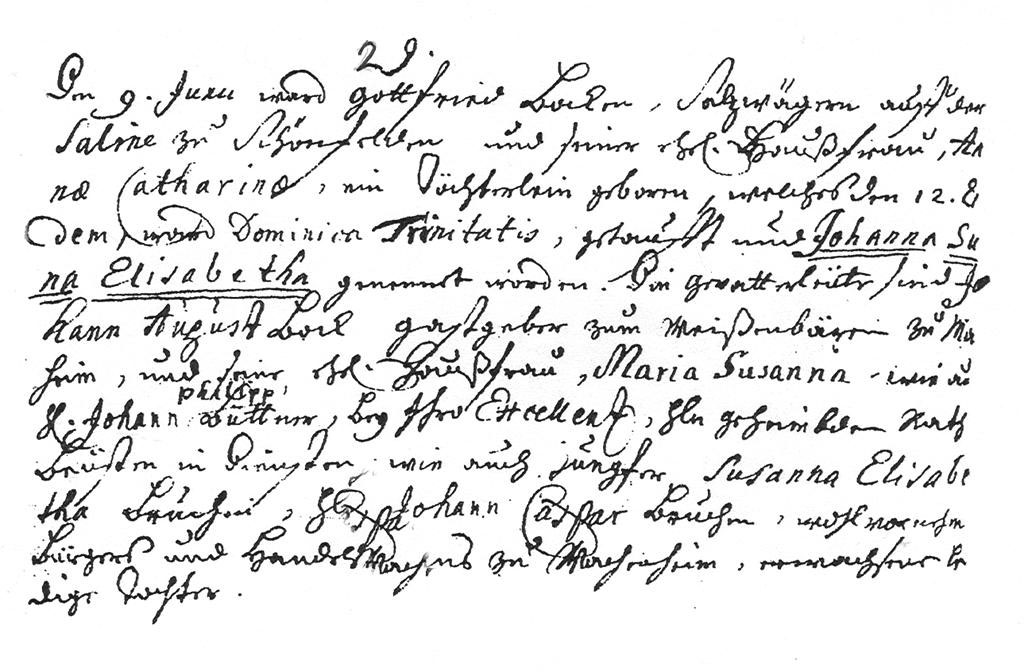 29.
Den 9. Junii ward Gottfried Bocken, Salzwägern auff der
Saline zu Schönfelden und seiner ehel. Haußfrau, An
næ Catharinæ, ein Töchterlein geboren, welches den 12. E
dem, ward Dominica Trinitatis, getaufft und Johanna Su
na Elisabetha genennet worden. Die gevatterleüte sind Jo
hann August Bock gastgeber zum Weißenbären zu
heim, und seine ehel. Haußfrau, Maria Susanna. wie au
H. Johann Philipp Büttner, bey Ihro Excellenz, Hln geheimbden Rath
Beüsten in Diensten, wie auch Jungfer Susanna Elisabe
tha Brüchin, Johann Caspar Bruchen, wohlvornehm
Bürgers und Handels zu Wachenheim, erwachsene le
dige Tochter.